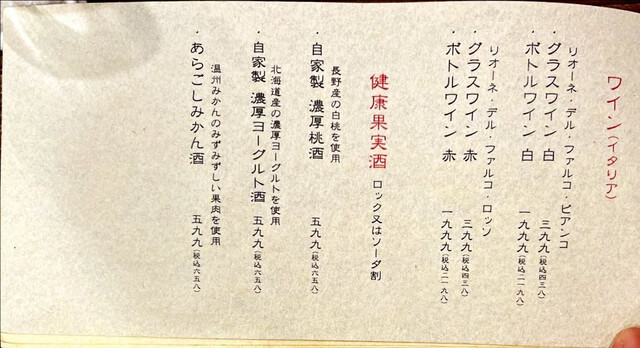 ワイン(イタリア)
リオーネ・デル・ファルコ・ビアンコ
・グラスワイン 白 三九九(税込四三八)
・ボトルワイン 白 一九九九(税込二一九八)
リオーネ・デル・ファルコ・ロッソ
・グラスワイン 赤 三九九(税込四三八)
・ボトルワイン 赤 一九九九(税込二一九八)
健康果実酒 ロック又はソーダ割
長野産の白桃を使用
・自家製 濃厚桃酒 五九九(税込六五八)
北海道産の濃厚ヨーグルトを使用
・自家製 濃厚ヨーグルト酒 五九九(税込六五八)
温州みかんのみずみずしい果肉を使用
・あらごしみかん酒 五九九(税込六五八)